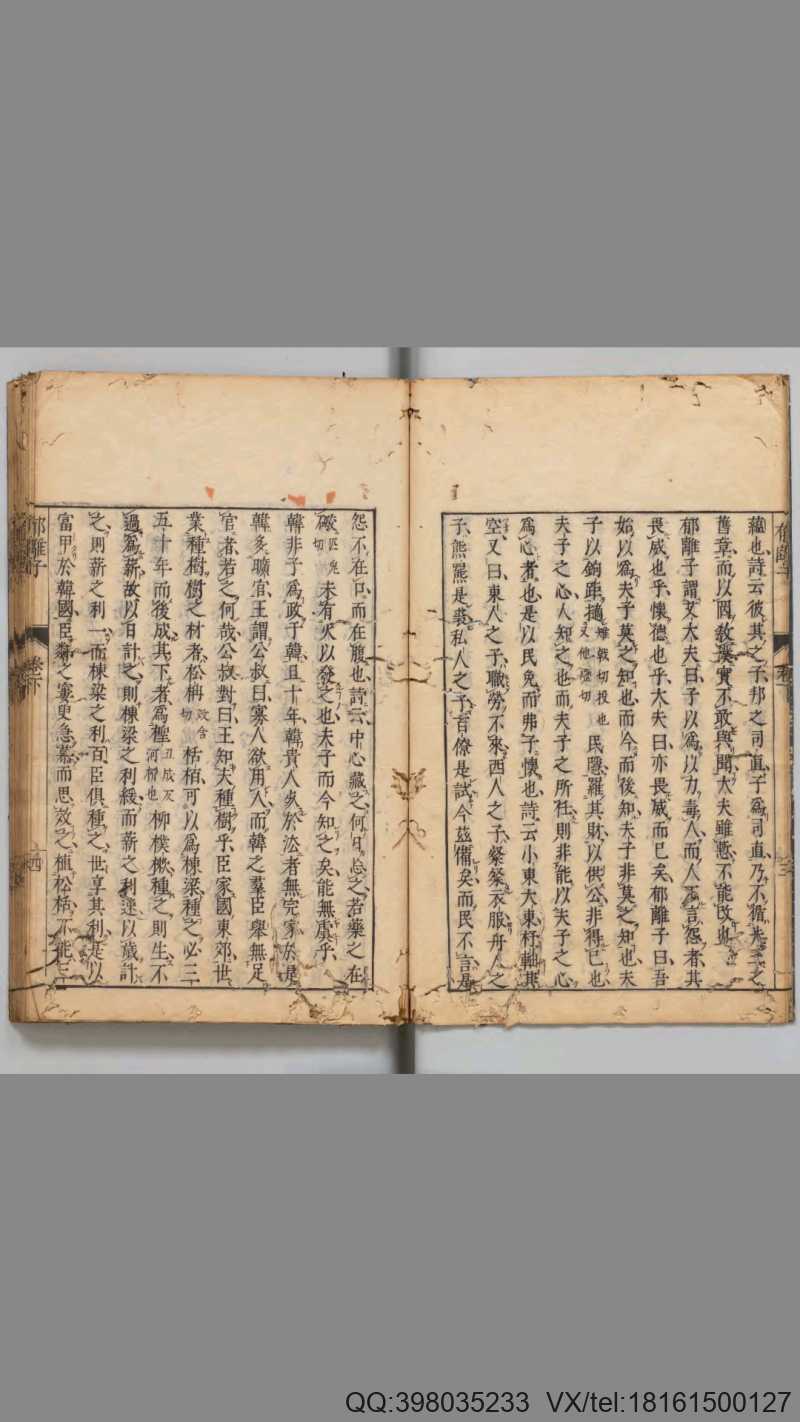 郁離子
蘊也詩云彼其之子邦之司直子為司直乃不循先王之
舊章而以因敎漢實不敢與聞大夫雖慙不能改也
郁離子謂艾大夫曰子以為以力毒人而人不言怨者其
畏威也乎懷德也乎大夫曰亦畏威而已矣郁離子曰吾
始以為夫子莫之知也而今而後知夫子非莫之知也夫
子以鉤距擿
民隱羅其財以供公非得已也
夫子之心人知之也而夫子之所任則非能以夫子之心
為心者也是以民免而弗子懷也詩云小東大東杼軸其
空又曰東人之子職勞不來西人之子粲粲衣服舟人之
子熊羆是裘私人之子百僚是試今茲備矣而民不言是
怨不在口而在腹也詩云中心藏之何日忘之若藥之在
礮匹皃切未有火以發之也夫子而今知之矣能無虞乎
韓非子為政于韓且十年韓貴人死於法者無完家於是
韓多曠官王謂公叔曰寡人欲用人而韓之羣臣舉無足
官者若之何哉公叔對曰王知夫種樹乎臣家國東郊世
業種樹樹之材者松柟
栝栢可以為棟梁種之必三
五十年而後成其下者為檉丑成反河柳也柳樸樕種之則生不
過為薪故以日計之則棟梁之利緩而薪之利速以歲計
之則薪之利一而棟梁之利百臣俱種之世享其利是以
富甲於韓國臣鄰之窶叟急慕而思效之植松栝不能三
郁離子
卷下
四
QQ:398035233 VX/tel:18161500127